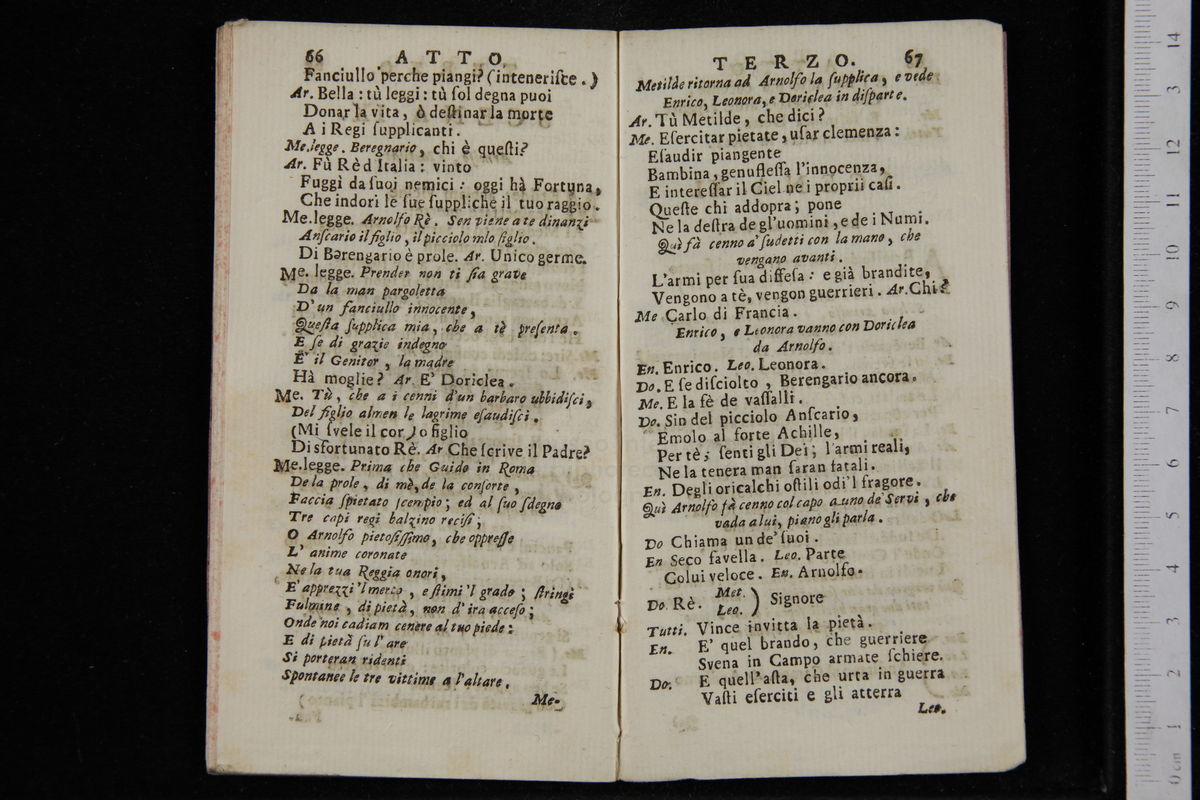 66 ATTO
Fanciullo perche piangi? (inteneriſce.)
Ar. Bella: tù leggi: tù ſol degna puoi
Donar la vita, ò deſtinar la morte
A i Regi ſupplicanti.
Me.legge. Beregnario, chi è queſti?
Ar. Fù Rè d Italia: vinto
Fuggì da ſuoi nemici: oggi hà Fortuna,
Che indori le ſue ſuppliche il tuo raggio.
Me.legge. Arnolfo Rè. Sen viene a te dinanzi
Anſcario il figlio, il picciolo mIo figlio.
Di Berengario è prole. Ar. Unico germe.
Me. legge. Prender non ti ſia grave
Da la man pargoletta
D'un fanciullo innocente,
Queſta ſupplica mia, che a tè preſenta.
E ſe di grazie indegno
E' il Genitor, la madre
Hà moglie? Ar. E' Doriclea.
Me. Tù, che a i cenni d'un barbaro ubbidiſci,
Del figlio almen le lagrime eſaudiſci.
(Mi ſvele il cor) o figlio
Disfortunato Rè. Ar Che ſcrive il Padre?
Me.legge. Prima che Guido in Roma
De la prole, di mè, de la conſorte,
Faccia ſpietato ſcempio; ed al ſuo ſdegno
Tre capi regi balzino reciſi;
O Arnolfo pietoſiſſimo, che oppreſſe
L' anime coronate
Ne la tua Reggia onori,
E' apprezzi 'l merto, e ſtimi 'l grado; ſtringi
Fulmine, di pietà, non d' ira acceſo;
Onde noi cadiam cenere al tuo piede:
E di pietà ſu l' are
Si porteran ridenti
Spontanee le tre vittime a l'altare.
Me-
TERZO. 67
Metilde ritorna ad Arnolfo la ſupplica, e vede
Enrico, Leonora, e Doriclea in diſparte.
Ar. Tù Metilde, che dici?
Me. Eſercitar pietate, uſar clemenza:
Eſaudir piangente
Bambina, genufleſſa l'innocenza,
E intereſſar il Ciel ne i proprii caſi.
Queſte chi addopra; pone
Ne la deſtra de gl'uomini, e de i Numi.
Quì fà cenno a' ſudetti con la mano, che
vengano avanti.
L'armi per ſua diffeſa: e già brandite,
Vengono a tè, vengon guerrieri. Ar. Chi?
Me Carlo di Francia.
Enrico, e Leonora vanno con Doriclea
da Arnolfo.
En. Enrico. Leo. Leonora.
Do. E ſe diſciolto, Berengario ancora.
Me. E la fè de vaſſalli.
Do. Sin del picciolo Anſcario,
Emolo al forte Achille,
Per tè; ſenti gli Dei; l'armi reali,
Ne la tenera man ſaran fatali.
En. Degli oricalchi oſtili odi'l fragore.
Quì Arnolfo fà cenno col capo a uno de' Servi, che
vada a lui, piano gli parla.
Do Chiama un de' ſuoi.
En Seco favella. Leo. Parte
Colui veloce. En. Arnolfo.
Do. Rè. Met. Leo. ) Signore
Tutti. Vince invitta la pietà.
En. E' quel brando, che guerriere
Svena in Campo armate ſchiere.
Do. E quell'aſta, che urta in guerra
Vaſti eſerciti e gli atterra
Leo.
0 cm 1 2 3 4 5 6 7 8 9 10 11 12 13 14